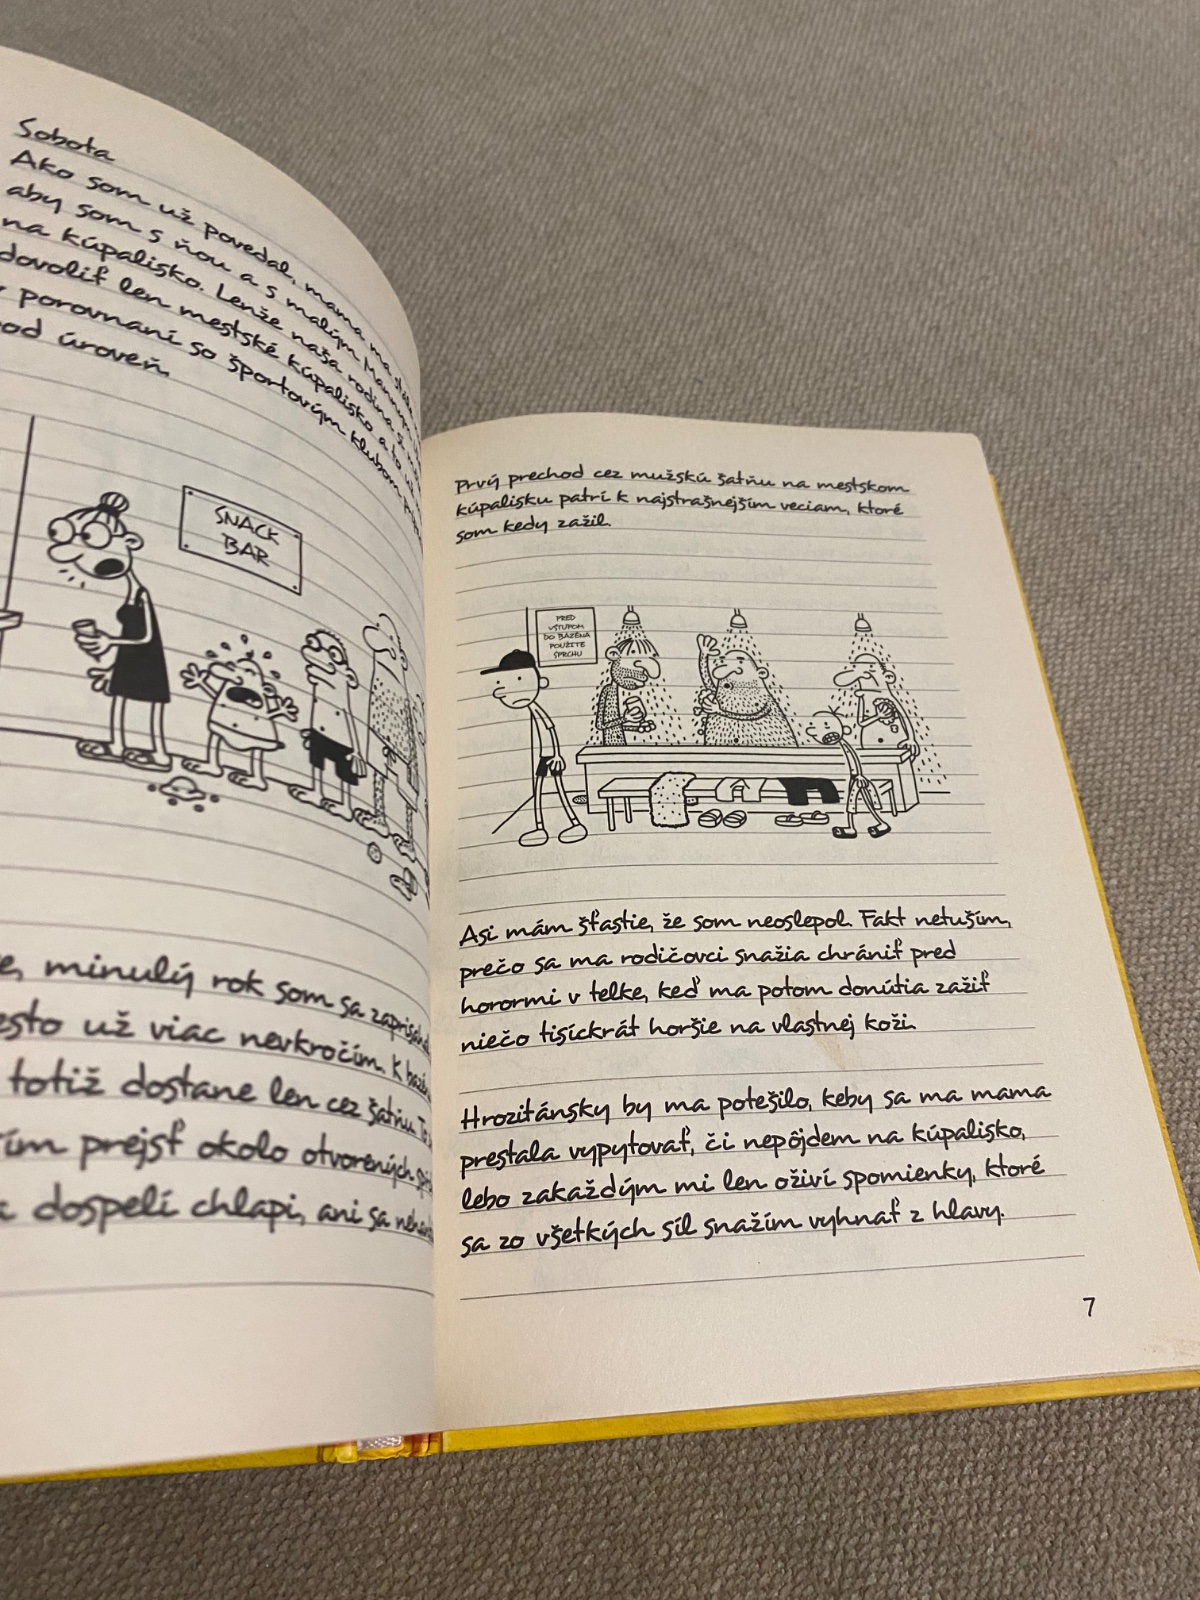 Sobota
Ako som už povedal, mama ma stále
aby som s ňou a s malým Mannym
na kúpalisko. Lenže naša rodina si
dovoliť len mestské kúpalisko a to už
porovnaní so športovým klubom
pod úroveň.
SNACK
BAR
minulý rok som sa zaprisahal
už viac nevkročím. K
totiž dostane len cez šatňu. To
prejsť okolo otvorených
dospelí chlapi, ani sa
Prvý prechod cez mužskú šatňu na mestskom
kúpalisku patrí k najstrašnejším veciam, ktoré
som kedy zažil.
PRED
VSTUPOM
DO BAZÉNA
POUŽITE
SPRCHU
Asi mám šťastie, že som neoslepol. Fakt netuším,
prečo sa ma rodičovci snažia chrániť pred
horormi v telke, keď ma potom donútia zažiť
niečo tisíckrát horšie na vlastnej koži.
Hrozitánsky by ma potešilo, keby sa ma mama
prestala vypytovať, či nepôjdem na kúpalisko,
lebo zakaždým mi len oživí spomienky, ktoré
sa zo všetkých síl snažím vyhnať z hlavy.
7